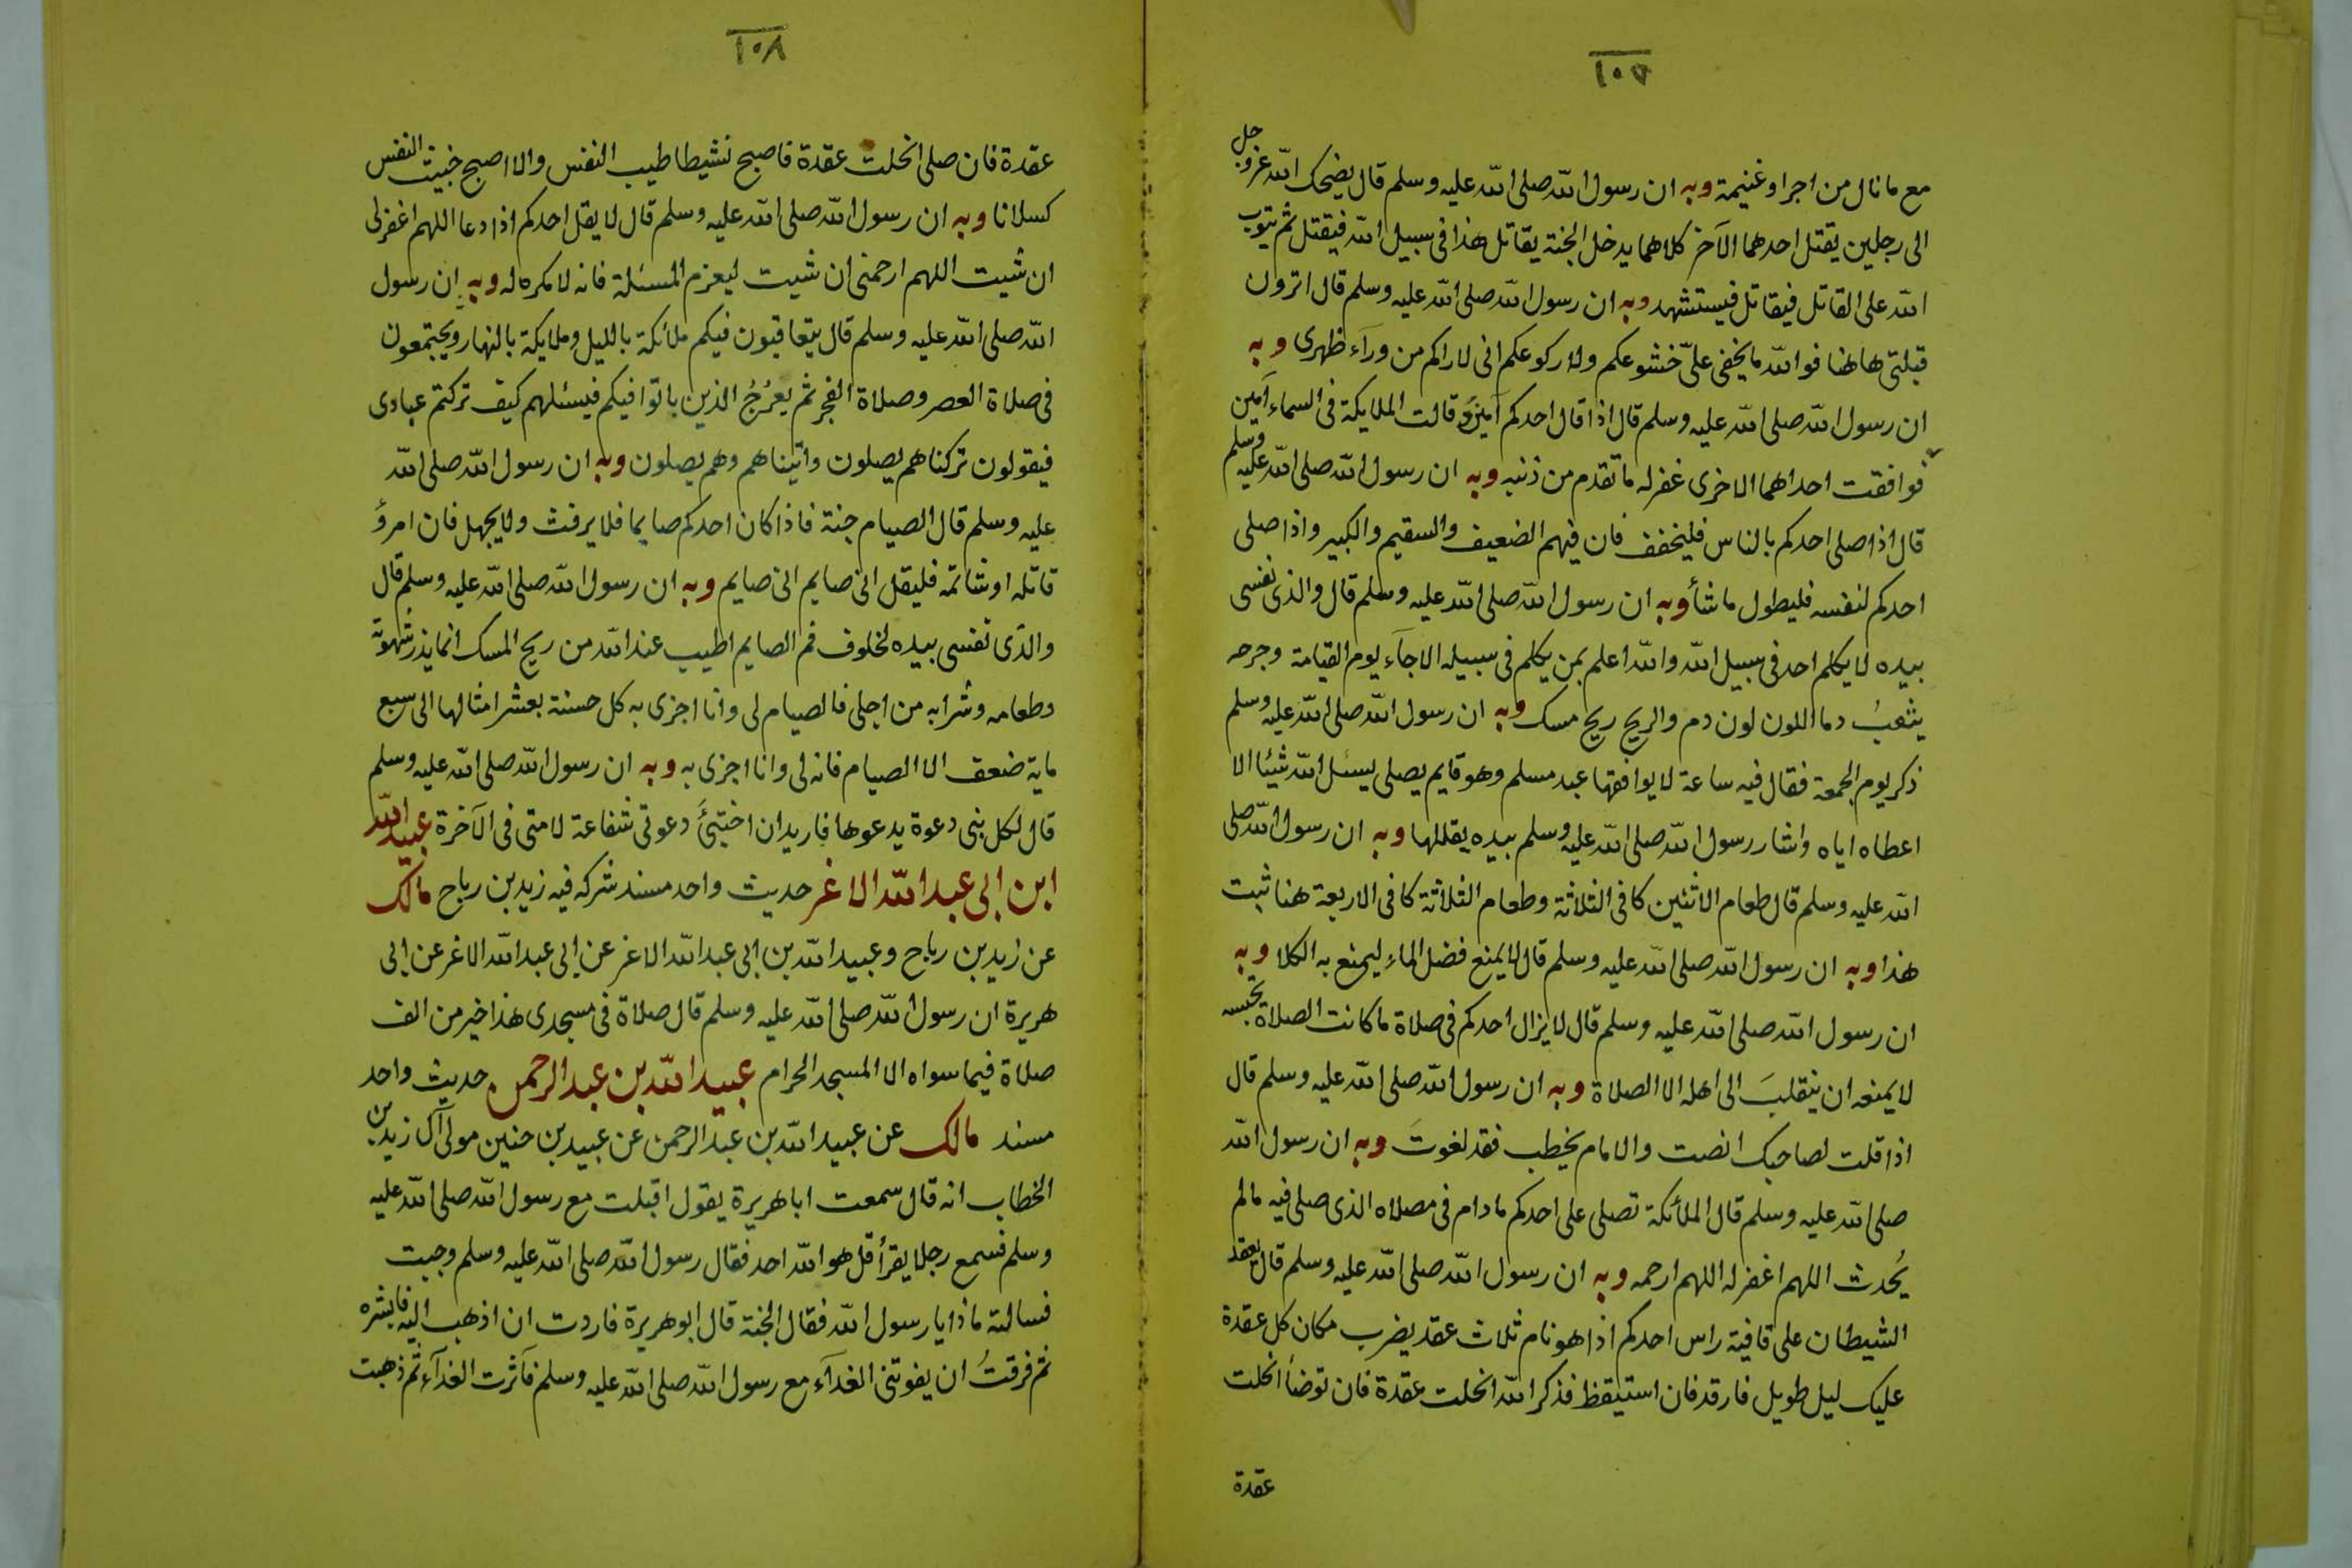 ١٠٧
مع ما نال من اجر او غنيمة وبه ان رسول الله صلى الله عليه وسلم قال يضحك الله عز وجل
الى رجلين يقتل احدهما الآخر كلاهما يدخل الجنة يقاتل هذا فى سبيل الله فيقتل ثم يتوب
الله على القاتل فيقاتل فيستشهد وبه ان رسول الله صلى الله عليه وسلم قال اترون
قبلتى هاهنا فوالله ما يخفى علىّ خشوعكم ولا ركوعكم انى لاراكم من ورآء ظهرى وبه
ان رسول الله صلى الله عليه وسلم قال اذا قال احدكم آمين وقالت الملايكة فى السماء آمين
فوافقت احداهما الاخرى غفر له ما تقدم من ذنبه وبه ان رسول الله صلى الله عليه وسلم
قال اذا صلى احدكم بالناس فليخفف فان فيهم الضعيف والسقيم والكبير واذا صلى
احدكم لنفسه فليطول ما شأ وبه ان رسول الله صلى الله عليه وسلم قال والذى نفسى
بيده لا يكلم احد فى سبيل الله والله اعلم بمن يكلم فى سبيله الا جآء يوم القيامة وجرحه
يثعبُ دما اللون لون دم والريح ريح مسك وبه ان رسول الله صلى الله عليه وسلم
ذكر يوم الجمعة فقال فيه ساعة لا يوافقها عبد مسلم وهو قايم يصلى يسئل الله شيئا الا
اعطاه اياه واشار رسول الله صلى الله عليه وسلم بيده يقللها وبه ان رسول الله صلى
الله عليه وسلم قال طعام الاثنين كافى الثلاثة وطعام الثلاثة كافى الاربعة هنا ثبت
هذا وبه ان رسول الله صلى الله عليه وسلم قال لا يمنع فضل الماء ليمنع به الكلا وبه
ان رسول الله صلى الله عليه وسلم قال لا يزال احدكم فى صلاة ما كانت الصلاة تحبسه
لا يمنعه ان ينقلبَ الى اهله الا الصلاة وبه ان رسول الله صلى الله عليه وسلم قال
اذا قلت لصاحبك انصت والامام يخطب فقد لغوتَ وبه ان رسول الله
صلى الله عليه وسلم قال الملأئكة تصلى على احدكم ما دام فى مصلاه الذى صلى فيه ما لم
يُحدث اللهم اغفر له اللهم ارحمه وبه ان رسول الله صلى الله عليه وسلم قال يعقد
الشيطان على قافية راس احدكم اذا هو نام ثلاث عقد يضرب مكان كل عقدة
عليك ليل طويل فارقد فان استيقظ فذكر الله انحلت عقدة فان توضأ انحلت
عقدة
١٠٨
عقدة فان صلى انحلت عقدة فاصبح نشيطا طيب النفس والا اصبح خبيث النفس
كسلانا وبه ان رسول الله صلى الله عليه وسلم قال لا يقل احدكم اذا دعا اللهم اغفر لى
ان شيت اللهم ارحمنى ان شيت ليعزم المسئلة فانه لا مكره له وبه ان رسول
الله صلى الله عليه وسلم قال يتعاقبون فيكم ملائكة بالليل وملايكة بالنهار ويجتمعون
فى صلاة العصر وصلاة الفجر ثم يعرُجُ الذين باتوا فيكم فيسئلهم كيف تركتم عبادى
فيقولون تركناهم يصلون واتيناهم وهم يصلون وبه ان رسول الله صلى الله
عليه وسلم قال الصيام جنة فاذا كان احدكم صايما فلا يرفث ولا يجهل فان امرؤ
قاتله او شاتمه فليقل انى صايم انى صايم وبه ان رسول الله صلى الله عليه وسلم قال
والذى نفسى بيده لخلوف فم الصايم اطيب عند الله من ريح المسك انما يذر شهوته
وطعامه وشرابه من اجلى فالصيام لى وانا اجزى به كل حسنة بعشر امثالها الى سبع
ماية ضعف الا الصيام فانه لى وانا اجزى به وبه ان رسول الله صلى الله عليه وسلم
قال لكل نبى دعوة يدعوها فاريد ان اختبئَ دعوتى شفاعة لامتى فى الآخرة عبيد الله
ابن ابى عبد الله الاغر حديث واحد مسند شركه فيه زيد بن رباح مالك
عن زيد بن رباح وعبيد الله بن ابى عبد الله الاغر عن ابى عبد الله الاغر عن ابى
هريرة ان رسول الله صلى الله عليه وسلم قال صلاة فى مسجدى هذا خير من الف
صلاة فيما سواه الا المسجد الحرام عبيد الله بن عبد الرحمن حديث واحد
مسند مالك عن عبيد الله بن عبد الرحمن عن عبيد بن حنين مولى آل زيد بن
الخطاب انه قال سمعت ابا هريرة يقول اقبلت مع رسول الله صلى الله عليه
وسلم فسمع رجلا يقرأ قل هو الله احد فقال رسول الله صلى الله عليه وسلم وجبت
فسالته ماذا يا رسول الله فقال الجنة قال ابو هريرة فاردت ان اذهب اليه فابشره
ثم فرقتُ ان يفوتنى الغدآء مع رسول الله صلى الله عليه وسلم فآثرت الغدآء ثم ذهبت